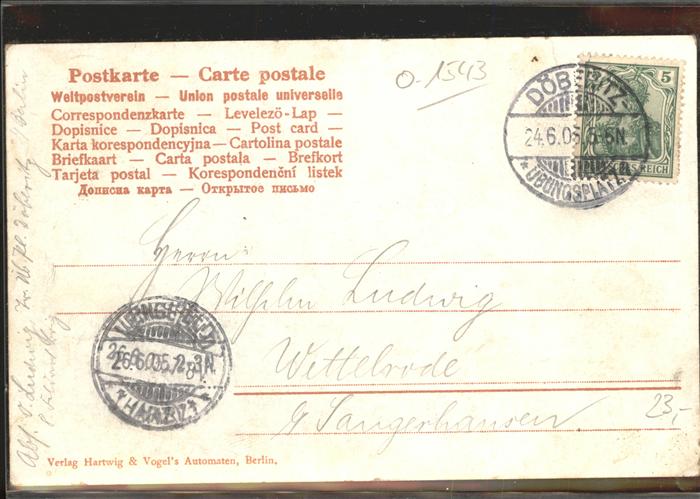 Postkarte — Carte postale
Weltpostverein — Union postale universelle
Correspondenzkarte — Levelezö-Lap —
Dopisnice — Dopisnica — Post card —
Karta korespondencyjna — Cartolina postale
Briefkaart — Carta postala — Brefkort
Tarjeta postal — Korespondenční listek
Дописна карта — Открытое письмо
0-1543
5
REICH
DÖBERITZ-
24.6.05 5-6N.
* ÜBUNGSPLATZ *
Herrn
Wilhelm Ludwig
Wettelrode
b/ Sangerhausen
23,-
26.6.05.
* HARZ *
Abs. Ludwig
Döberitz
Berlin
Verlag Hartwig & Vogel's Automaten, Berlin.